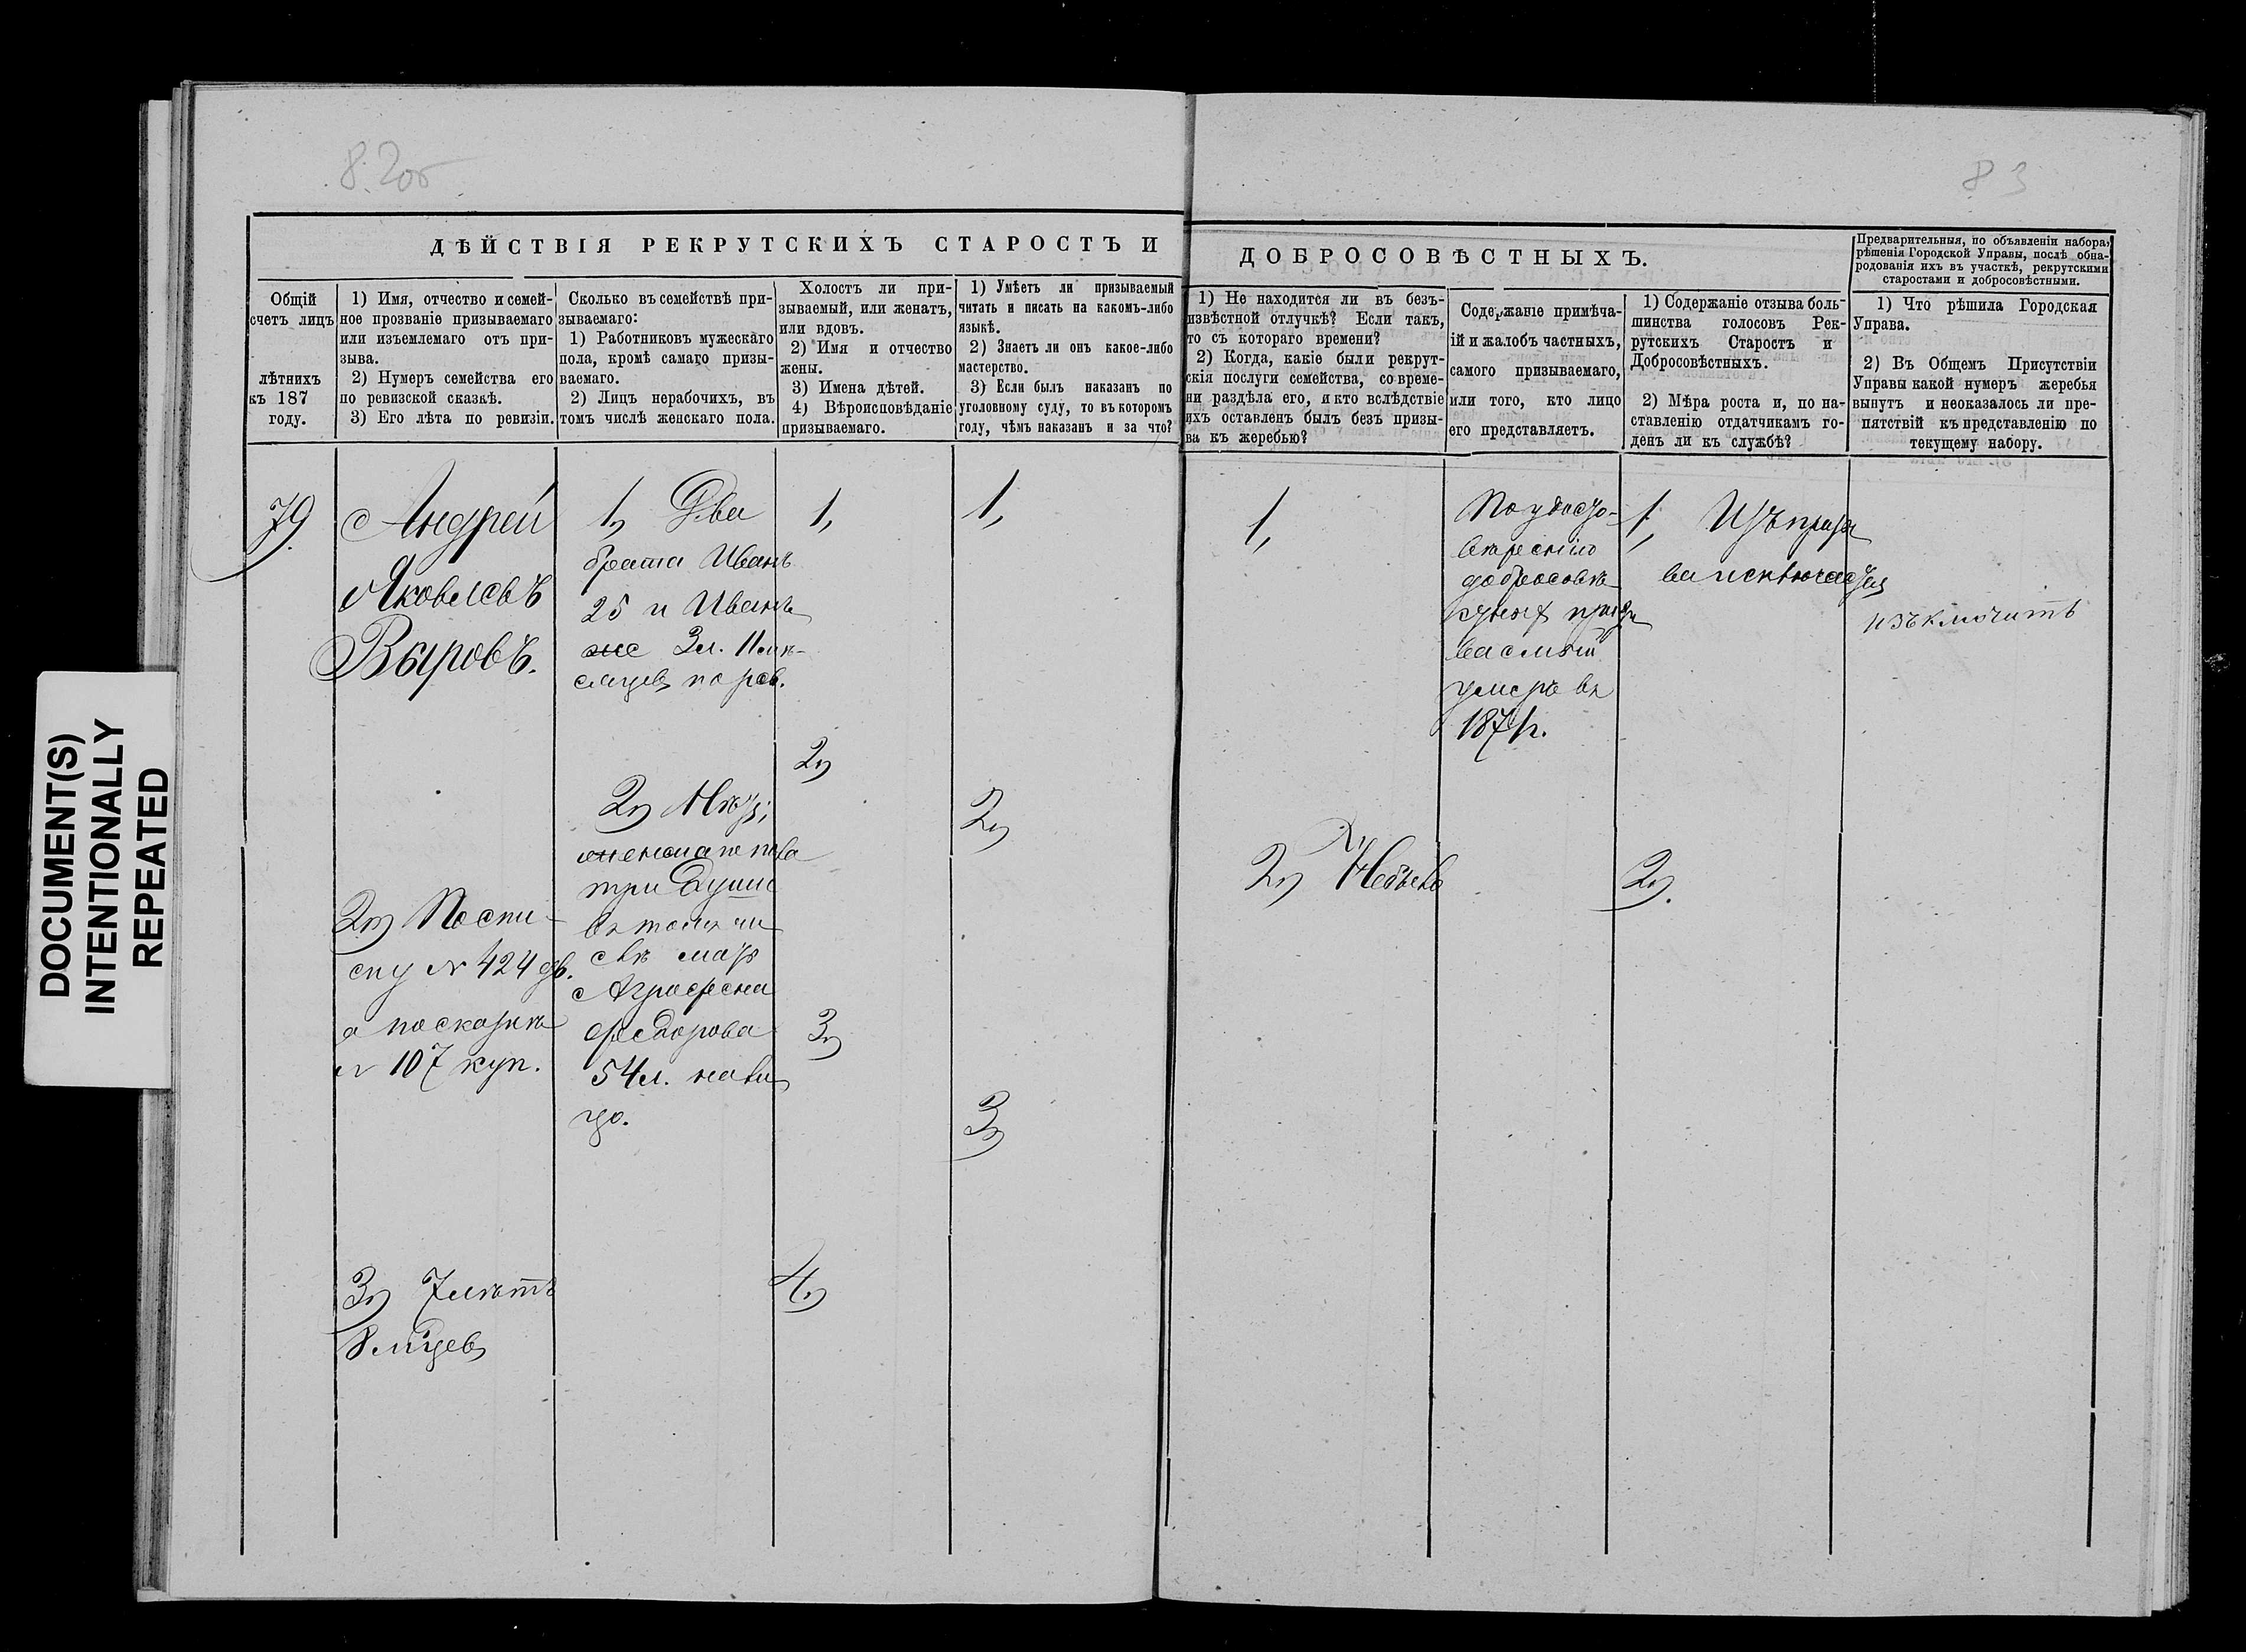 8.2об
83
DOCUMENT(S)
INTENTIONALLY
REPEATED
ДѢЙСТВІЯ РЕКРУТСКИХЪ СТАРОСТЪ И
Общій
счетъ лицъ
лѣтнихъ
къ 187
году.
1) Имя, отчество и семей-
ное прозваніе призываемаго
или изъемлемаго отъ при-
зыва.
2) Нумеръ семейства его
по ревизской сказкѣ.
3) Его лѣта по ревизіи.
Сколько въ семействѣ при-
зываемаго:
1) Работниковъ мужескаго
пола, кромѣ самаго призы-
ваемаго.
2) Лицъ нерабочихъ, въ
томъ числѣ женскаго пола.
Холостъ ли при-
зываемый, или женатъ,
или вдовъ.
2) Имя и отчество
жены.
3) Имена дѣтей.
4) Вѣроисповѣданіе
призываемаго.
1) Умѣетъ ли призываемый
читать и писать на какомъ-либо
языкѣ.
2) Знаетъ ли онъ какое-либо
мастерство.
3) Если былъ наказанъ по
уголовному суду, то въ которомъ
году, чѣмъ наказанъ и за что?
ДОБРОСОВѢСТНЫХЪ.
1) Не находится ли въ безъ-
извѣстной отлучкѣ? Если такъ,
то съ котораго времени?
2) Когда, какіе были рекрут-
скія послуги семейства, со време-
ни раздѣла его, и кто вслѣдствіе
ихъ оставленъ былъ безъ призы-
ва къ жеребью?
Содержаніе примѣча-
ій и жалобъ частныхъ,
самого призываемаго,
или того, кто лицо
его представляетъ.
1) Содержаніе отзыва боль-
шинства голосовъ Рек-
рутскихъ Старостъ и
Добросовѣстныхъ.
2) Мѣра роста и, по на-
ставленію отдатчикамъ го-
денъ ли къ службѣ?
Предварительныя, по объявленіи набора,
рѣшенія Городской Управы, послѣ обна-
родованія ихъ въ участкѣ, рекрутскими
старостами и добросовѣстными.
1) Что рѣшила Городская
Управа.
2) Въ Общемъ Присутствіи
Управы какой нумеръ жеребья
вынутъ и неоказалось ли пре-
пятствій къ представленію по
текущему набору.
79.
Андрей
Яковлевъ
Выровъ.
2) По спи-
ску № 424 дв.
а по сказкѣ
№ 107 куп.
3) 7 лѣтъ
8 м҃цев
1) Два
брата Иванъ
25 и Иванъ
же 3 л. 11 мѣ-
сяцев по рев.
2)
три души
въ томъ чи
слѣ мать
Аграфена
Федорова
54 л. на ли
цо.
1,
2)
3)
4)
1,
2)
3)
1,
2) Не былъ
По удосто-
вѣренію
добросовѣ-
стныхъ призы
ваемый
умеръ въ
1871 г.
1, Изъ призы
ва исключается
2).
изъключить